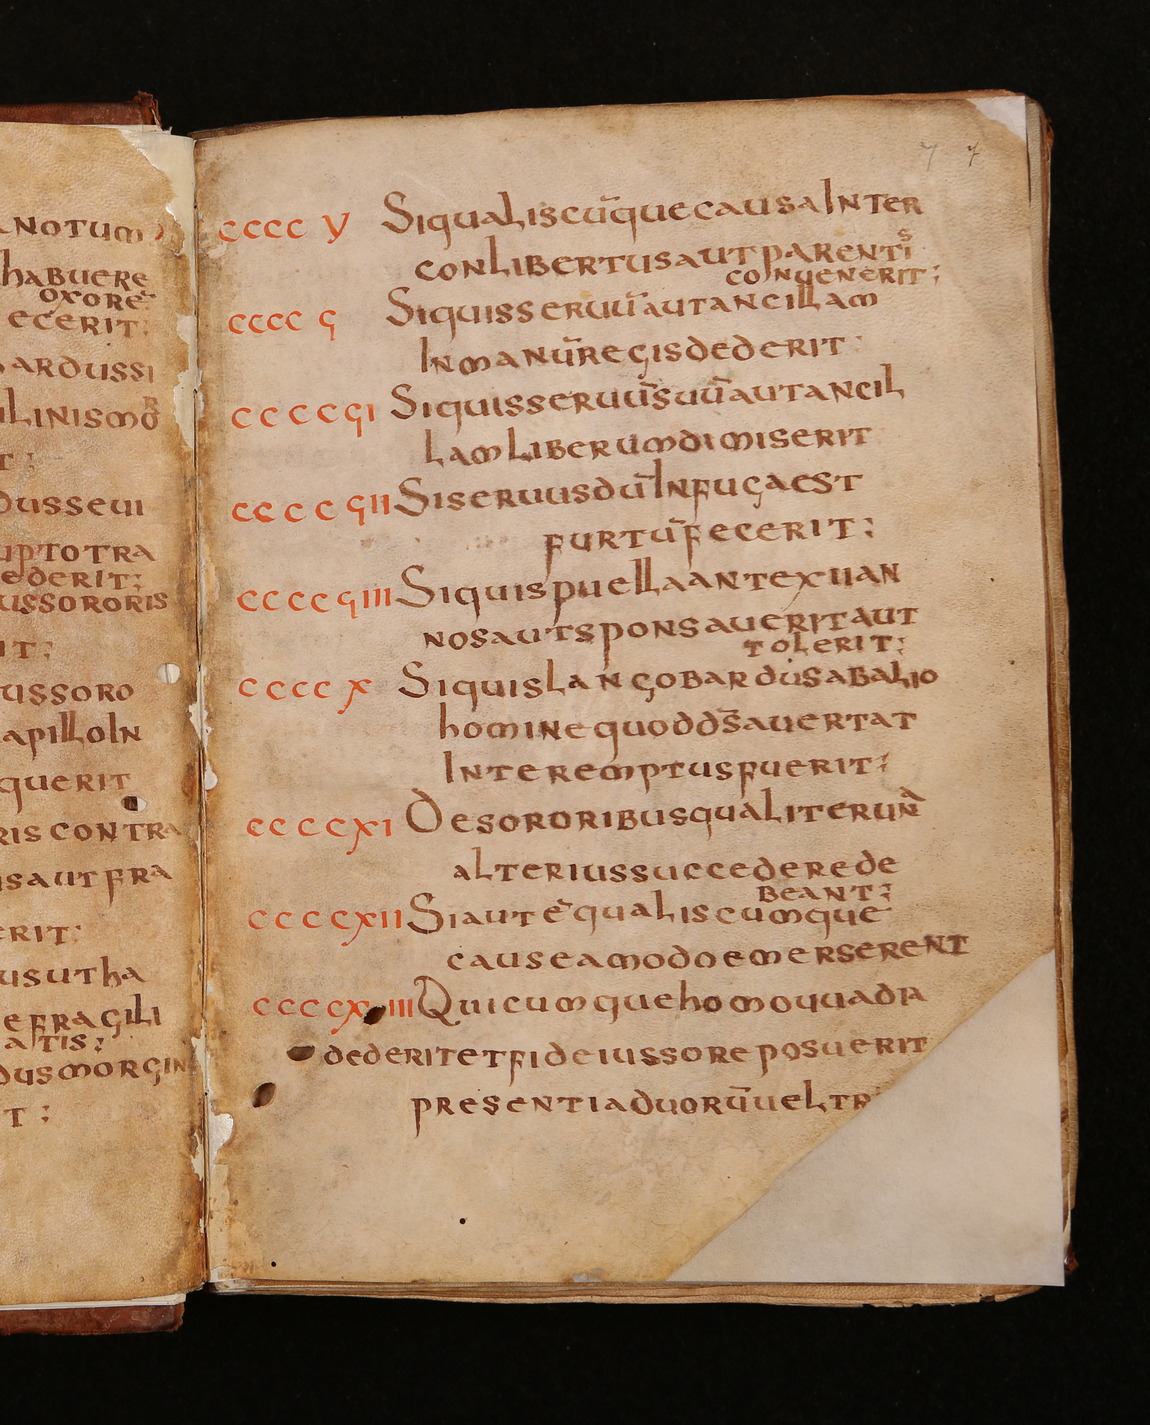 NOTUM
HABUERE
OXORE
ECERIT:
ARDUSSI
LINISMO
R
T:
DUSSEUI
UPTOTRA
EDERIT:
USSORORIS
IT:
USSORO
APILLOIN
QUERIT
RIS CONTRA
SAUT FRA
ERIT:
USUTHA
EFRAGILI
ATIS:
DUSMORGIN
T:
7 7
CCCC V SIQUALISCŪQUECAUSAINTER
CONLIBERTUSAUTPARENTI
S
CONUENERIT:
CCCC ϛ SIQUISSERUŪAUTANCILLAM
INMANŪREGISDEDERIT:
CCCCϛI SIQUISSERUŪSUŪAUTANCIL
LAMLIBERUMDIMISERIT
CCCCϛII SISERUUSDŪINFUGAEST
FURTŪFECERIT:
CCCCϛIII SIQUISPUELLAANTEXIIAN
NOSAUTSPONSAUERITAUT
TOLERIT:
CCCC X SIQUISLANGOBARDUSABALIO
HOMINEQUODD̄S̄AUERTAT
INTEREMPTUSFUERIT:
CCCCXI DESORORIBUSQUALITERUNA
ALTERIUSSUCCEDEREDE
BEANT:
CCCCXII SIAUTĒQUALISCUMQUE
CAUSEAMODOEMERSERENT
CCCCX III QUICUMQUEHOMOUUADIA
DEDERITETFIDEIUSSOREPOSUERIT
PRESENTIADUORŪUELTR